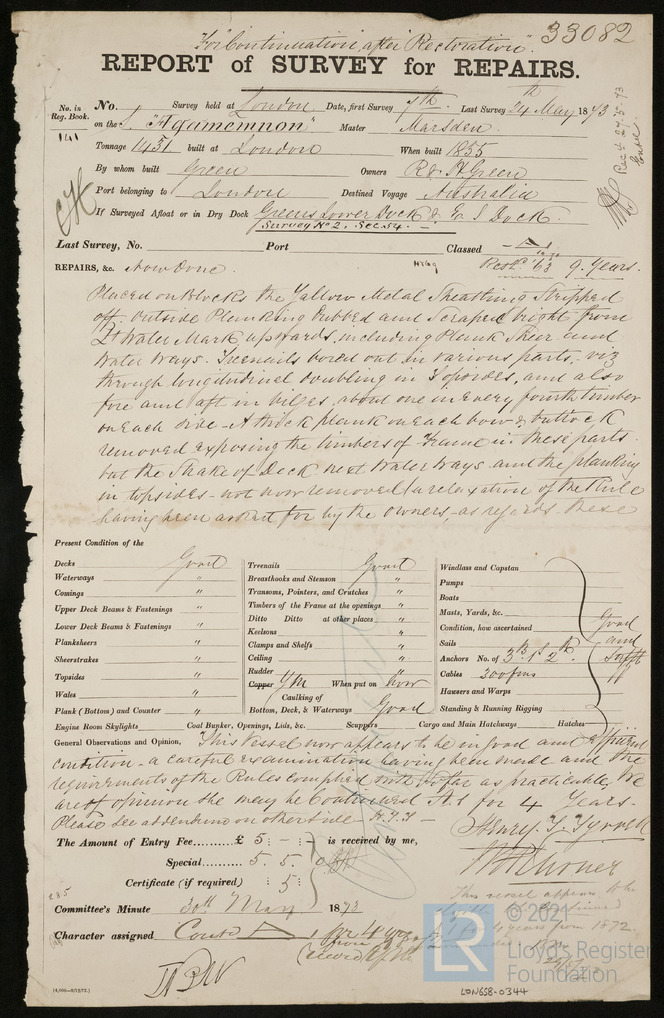 "For Continuation, after Restoration". 33082
REPORT of SURVEY for REPAIRS.
No. in Reg. Book. 141
No. Survey held at London Date, first Survey 7th Last Survey 24th May 1873
on the S. "Agamemnon" Master Marsden
Tonnage 1431 built at London When built 1855
By whom built Green Owners R & H Green
Port belonging to London Destined Voyage Australia
If Surveyed Afloat or in Dry Dock Greens Lower Dock & E. I Dock.
Survey No 2, Sec. 54.
Last Survey, No. Port Classed A1
REPAIRS, &c. Now Done. Rest.d '63 9. Years.
Placed on Blocks the Yallow Metal Sheathing Stripped
off. Outside Planking rubbed and Scraped bright from
Lt Water Mark upwards, including Plank Sheer and
Water Ways. Treenails bored out in various parts. viz
through longitudinal doubling in Topsides, and also
fore and aft in bilges, about one in every fourth timber
on each side. A thick plank on each bow & buttock
removed exposing the timbers of Frame in these parts.
but the Strake of Deck next Water Ways and the planking
in topsides not now removed (a relaxation of the Rule
having been asked for by the owners as regards these
Present Condition of the
Decks Good
Waterways "
Comings "
Upper Deck Beams & Fastenings "
Lower Deck Beams & Fastenings "
Planksheers "
Sheerstrakes "
Topsides "
Wales "
Plank (Bottom) and Counter "
Engine Room Skylights
Treenails Good
Breasthooks and Stemson "
Transoms, Pointers, and Crutches "
Timbers of the Frame at the openings "
Ditto Ditto at other places "
Keelsons "
Clamps and Shelfs "
Ceiling "
Rudder "
Copper YM When put on Now
Caulking of
Bottom, Deck, & Waterways Good
Coal Bunker, Openings, Lids, &c. Scuppers Cargo and Main Hatchways Hatches
Windlass and Capstan
Pumps
Boats
Masts, Yards, &c.
Condition, how ascertained
Sails
Anchors No. of 3B. 1S 2K.
Cables 300 fms
Hawsers and Warps
Standing & Running Rigging
Good and
General Observations and Opinion, This Vessel now appears to be in good and efficient
condition a careful examination having been made and the
requirements of the Rules complied with so far as practicable. We
are of opinion she may be Continued A.1 for 4 Years.
Please see addendum on other side H.T.T
The Amount of Entry Fee £ 5 : - : is received by me,
Special 5. 5.
Certificate (if required) 5
Henry T. Tyrrell
Committee's Minute 30th May 1873
This vessel appears to be
Character assigned Contd A 1 for 4 yrs
from
© 2021
Lloyd's Register
Foundation
LR
LON658-0344